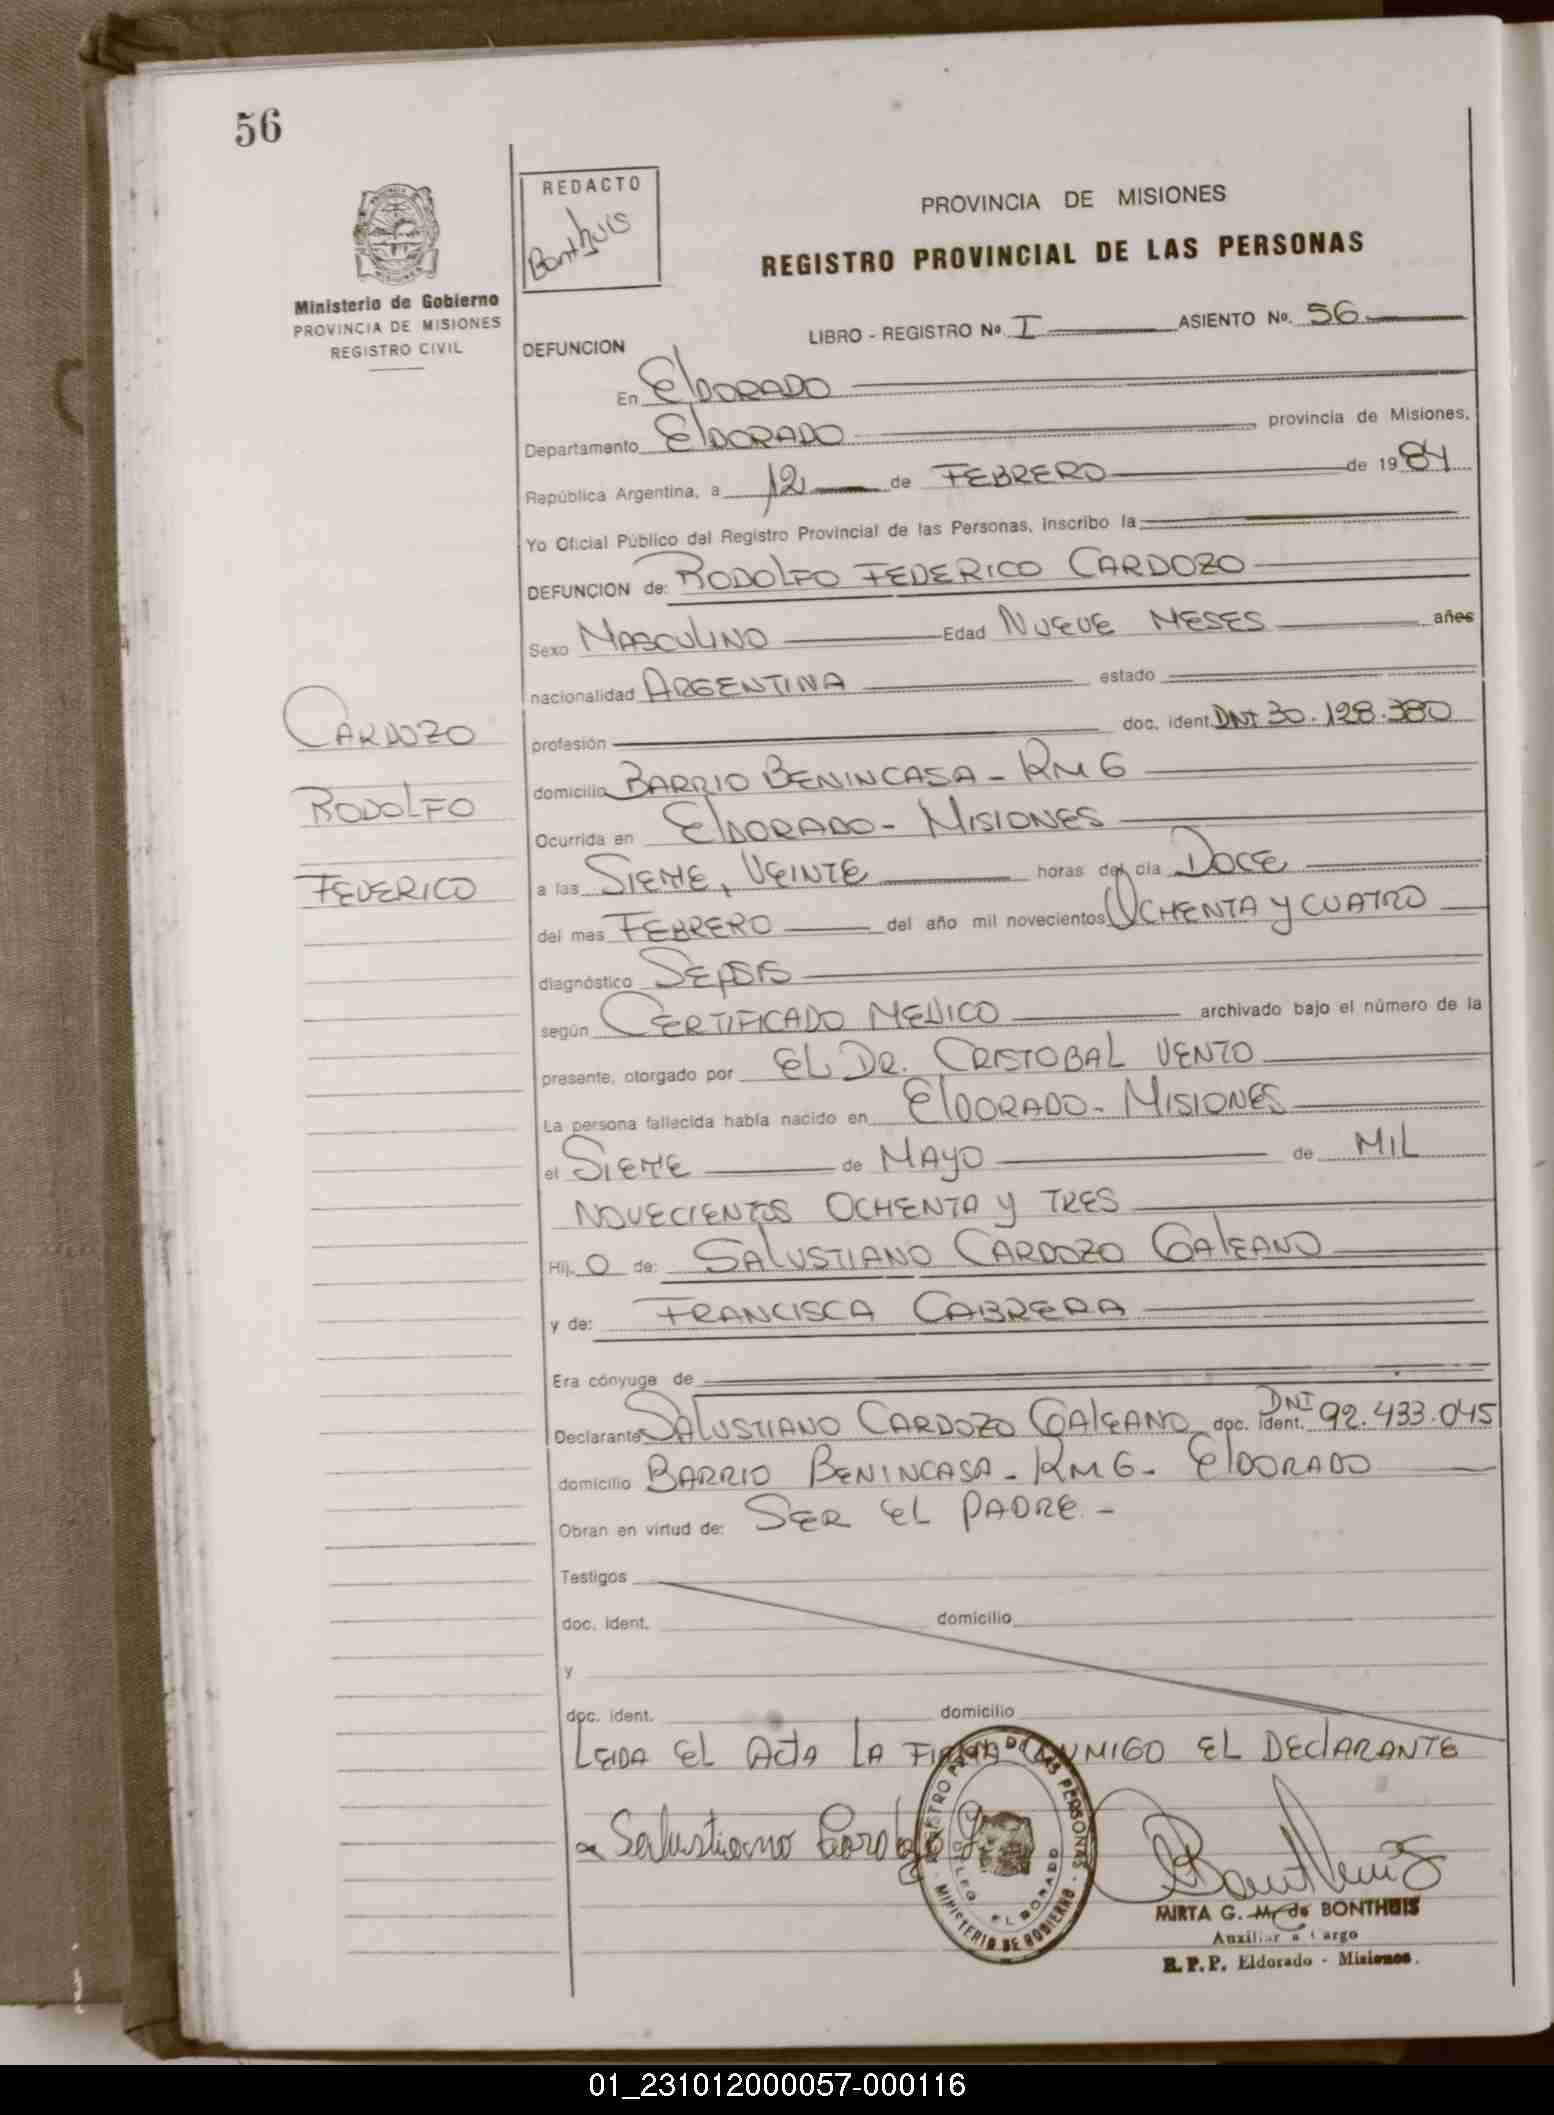 56
REDACTO
Bonthuis
PROVINCIA DE MISIONES
REGISTRO PROVINCIAL DE LAS PERSONAS
Ministerio de Gobierno
PROVINCIA DE MISIONES
REGISTRO CIVIL
LIBRO - REGISTRO Nº I ASIENTO Nº. 56
DEFUNCION
En ElDORADO
Departamento ElDORADO provincia de Misiones,
República Argentina, a 12 de FEBRERO de 1984
Yo Oficial Público del Registro Provincial de las Personas, inscribo la
DEFUNCION de: RODOLFO FEDERICO CARDOZO
Sexo MASCULINO Edad NUEVE MESES años
nacionalidad ARGENTINA estado
profesión doc. ident. DNI 30.128.380
domicilio BARRIO BENINCASA - KM 6
Ocurrida en ElDORADO - MISIONES
a las SIETE, VEINTE horas del día DOCE
del mes FEBRERO del año mil novecientos OCHENTA Y CUATRO
diagnóstico SEPSIS
según CERTIFICADO MEDICO archivado bajo el número de la
presente, otorgado por EL DR. CRISTOBAL VENTO
La persona fallecida había nacido en ElDORADO - MISIONES
el SIETE de MAYO de MIL
NOVECIENTOS OCHENTA Y TRES
Hij O de: SALUSTIANO CARDOZO GALEANO
y de: FRANCISCA CABRERA
Era cónyuge de
Declarante SALUSTIANO CARDOZO GALEANO doc. ident. DNI 92.433.045
domicilio BARRIO BENINCASA - KM 6 - ElDORADO
Obran en virtud de: SER EL PADRE. -
Testigos
doc. ident. domicilio
y
doc. ident. domicilio
LEIDA EL ACTA LA FIRMA CONMIGO EL DEClARANTE
CARDOZO
RODOLFO
FEDERICO
Salustiano Cardozo G
REGISTRO PROV. DE LAS PERSONAS
MINISTERIO DE GOBIERNO
DELEG. ELDORADO
Bonthuis
MIRTA G. M. de BONTHUIS
Auxiliar a Cargo
R.P.P. Eldorado - Misiones.
01_231012000057-000116